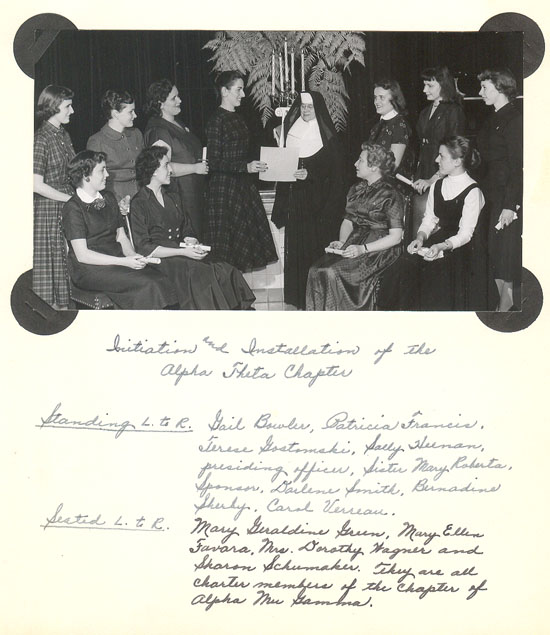 Initiation and Installation of the
Alpha Theta Chapter
Standing L. to R. Gail Bowler, Patricia Francis,
Terese Gostomski, Sally Heenan,
presiding officer, Sister Mary Roberta,
Sponsor, Darlene Smith, Bernadine
Sherby, Carol Verreau.
Seated L. to R. Mary Geraldine Green, Mary Ellen
Favara, Mrs. Dorothy Wagner and
Sharon Schumaker. They are all
charter members of the Chapter of
Alpha Mu Gamma.